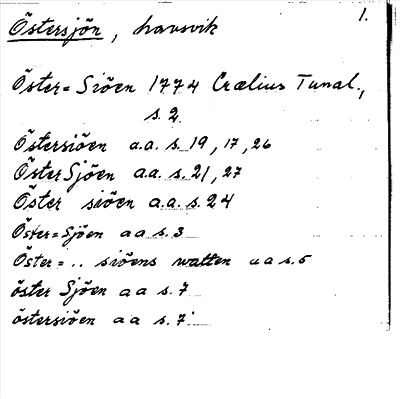 Östersjön, havsvik
1.
Öster=Siöen 1774 Crælius Tunal.,
s. 2
Östersiöen a.a. s. 19, 17, 26
ÖsterSjöen a.a. s. 21, 27
Öster siöen a.a. s. 24
Öster=Sjöen a a s. 3
Öster=.. siöens watten a a s. 5
öster Sjöen a a s. 7
östersiöen a a s. 7